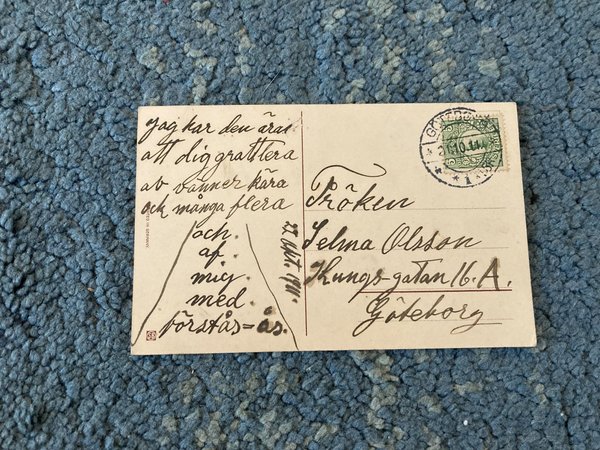 Jag har den äran
att dig grattlera
av vänner kära
och många flera
och
af
mig
med
förstås-ås.
22 okt. 1911.
Fröken
Selma Olsson
Kungs-gatan 16. A.
Göteborg